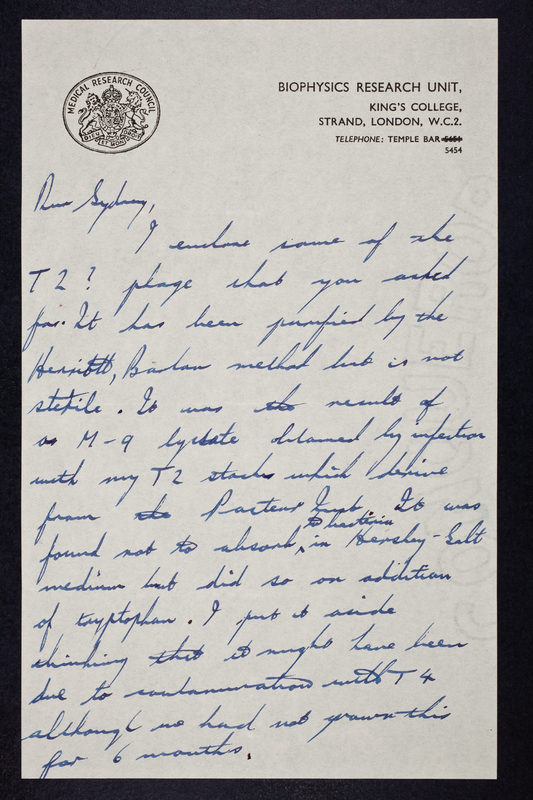 MEDICAL RESEARCH COUNCIL
BIOPHYSICS RESEARCH UNIT,
KING'S COLLEGE,
STRAND, LONDON, W.C.2.
TELEPHONE: TEMPLE BAR 5651
5454
Dear Sydney,
I enclose some of the
T2? phage that you asked
for. It has been purified by the
Herriott, Barlow method but is not
sterile. It was the result of
a M-9 lysate obtained by infection
with my T2 stocks which derive
from the Pasteur Inst. It was
found not to absorb to bacteria in Hershey-Salt
medium but did so on addition
of tryptophan. I put it aside
thinking that it might have been
due to contamination with T4
although we had not grown this
for 6 months.